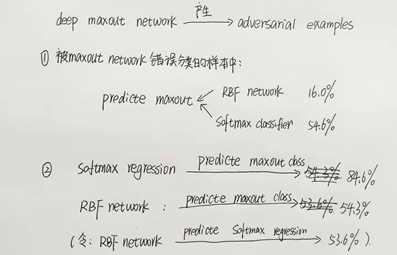 deep maxout network 产生 adversarial examples
① 被maxout network 错误分类的样本中:
predicte maxout RBF network 16.0%
Softmax classifier 54.6%
② Softmax regression predicte maxout class 54.3% 84.6%
RBF network : predicte maxout class 53.6% 54.3%
(令: RBF network predicte Softmax regression 53.6% ).